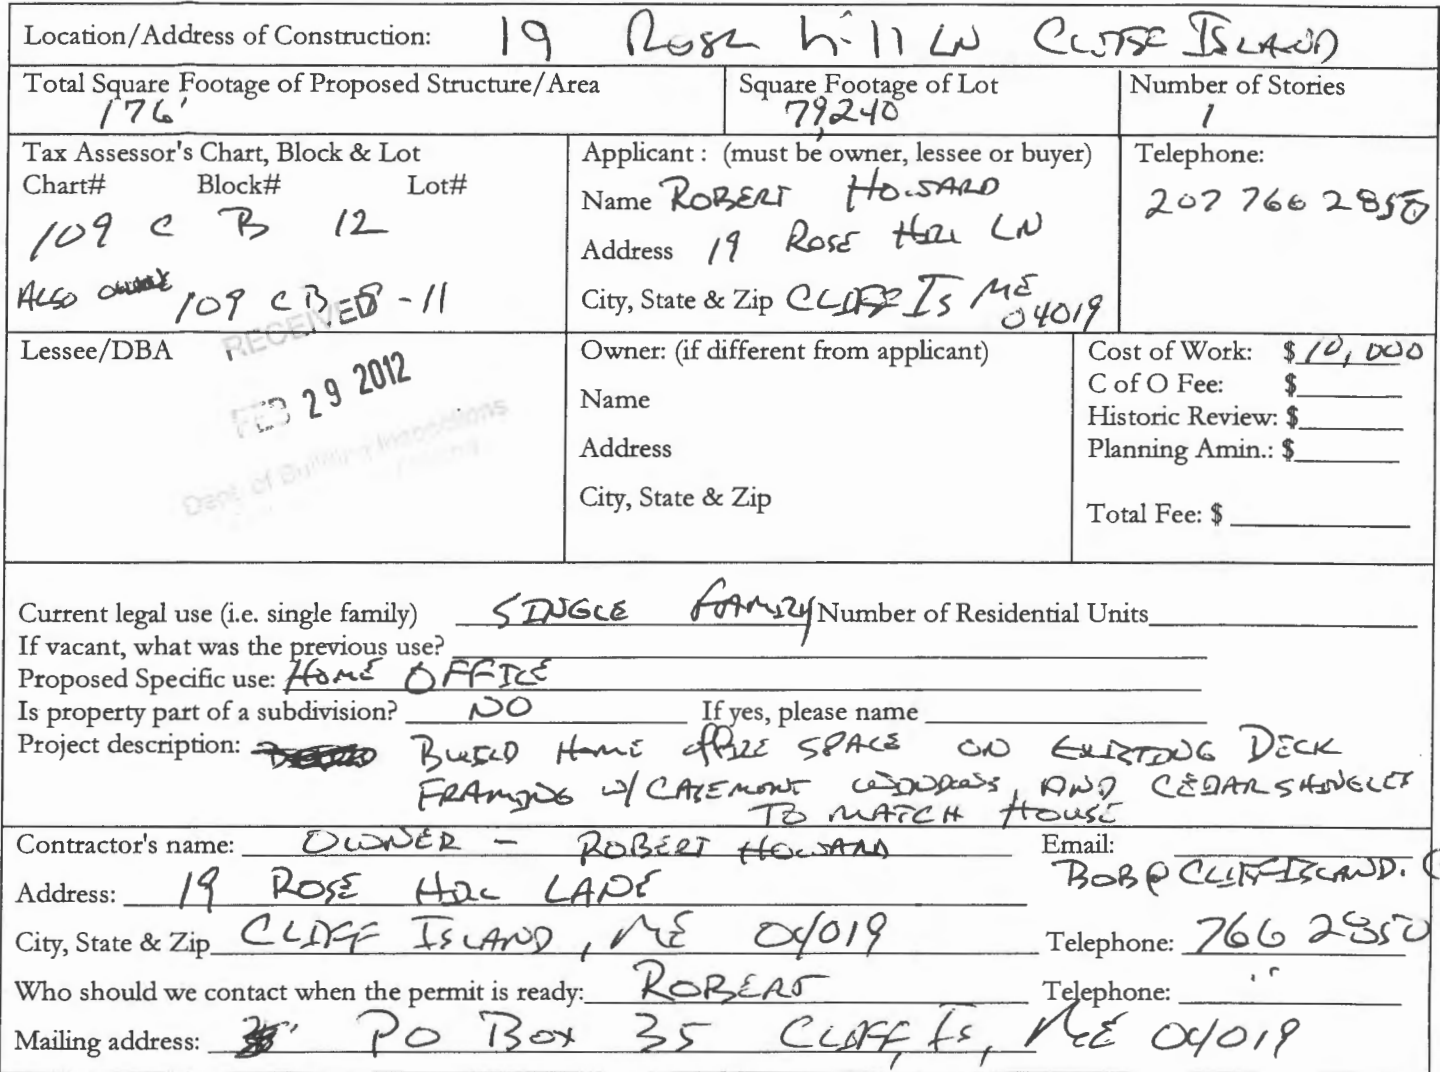 Location/Address of Construction: 19 Rose hill LN CLIFF ISLAND
Total Square Footage of Proposed Structure/Area
176'
Square Footage of Lot
79,240
Number of Stories
1
Tax Assessor's Chart, Block & Lot
Chart# Block# Lot#
109 C B 12
ALSO 109 C B 8-11
Applicant : (must be owner, lessee or buyer)
Name ROBERT HOWARD
Address 19 ROSE HILL LN
City, State & Zip CLIFF IS ME 04019
Telephone:
207 766 2850
Lessee/DBA
RECEIVED
FEB 29 2012
Dept. of Building Inspections
Owner: (if different from applicant)
Name
Address
City, State & Zip
Cost of Work: $ 10,000
C of O Fee: $
Historic Review: $
Planning Amin.: $
Total Fee: $
Current legal use (i.e. single family) SINGLE FAMILY Number of Residential Units
If vacant, what was the previous use?
Proposed Specific use: HOME OFFICE
Is property part of a subdivision? NO If yes, please name
Project description: BUILD HOME OFFICE SPACE ON EXISTING DECK
FRAMING W/ CASEMONT WINDOWS, AND CEDAR SHINGLES
TO MATCH HOUSE
Contractor's name: OWNER - ROBERT HOWARD Email:
BOB@CLIFFISLAND.
Address: 19 ROSE HILL LANE
City, State & Zip CLIFF ISLAND, ME 04019 Telephone: 766 2850
Who should we contact when the permit is ready: ROBERT Telephone: "
Mailing address: PO BOX 35 CLIFF IS, ME 04019